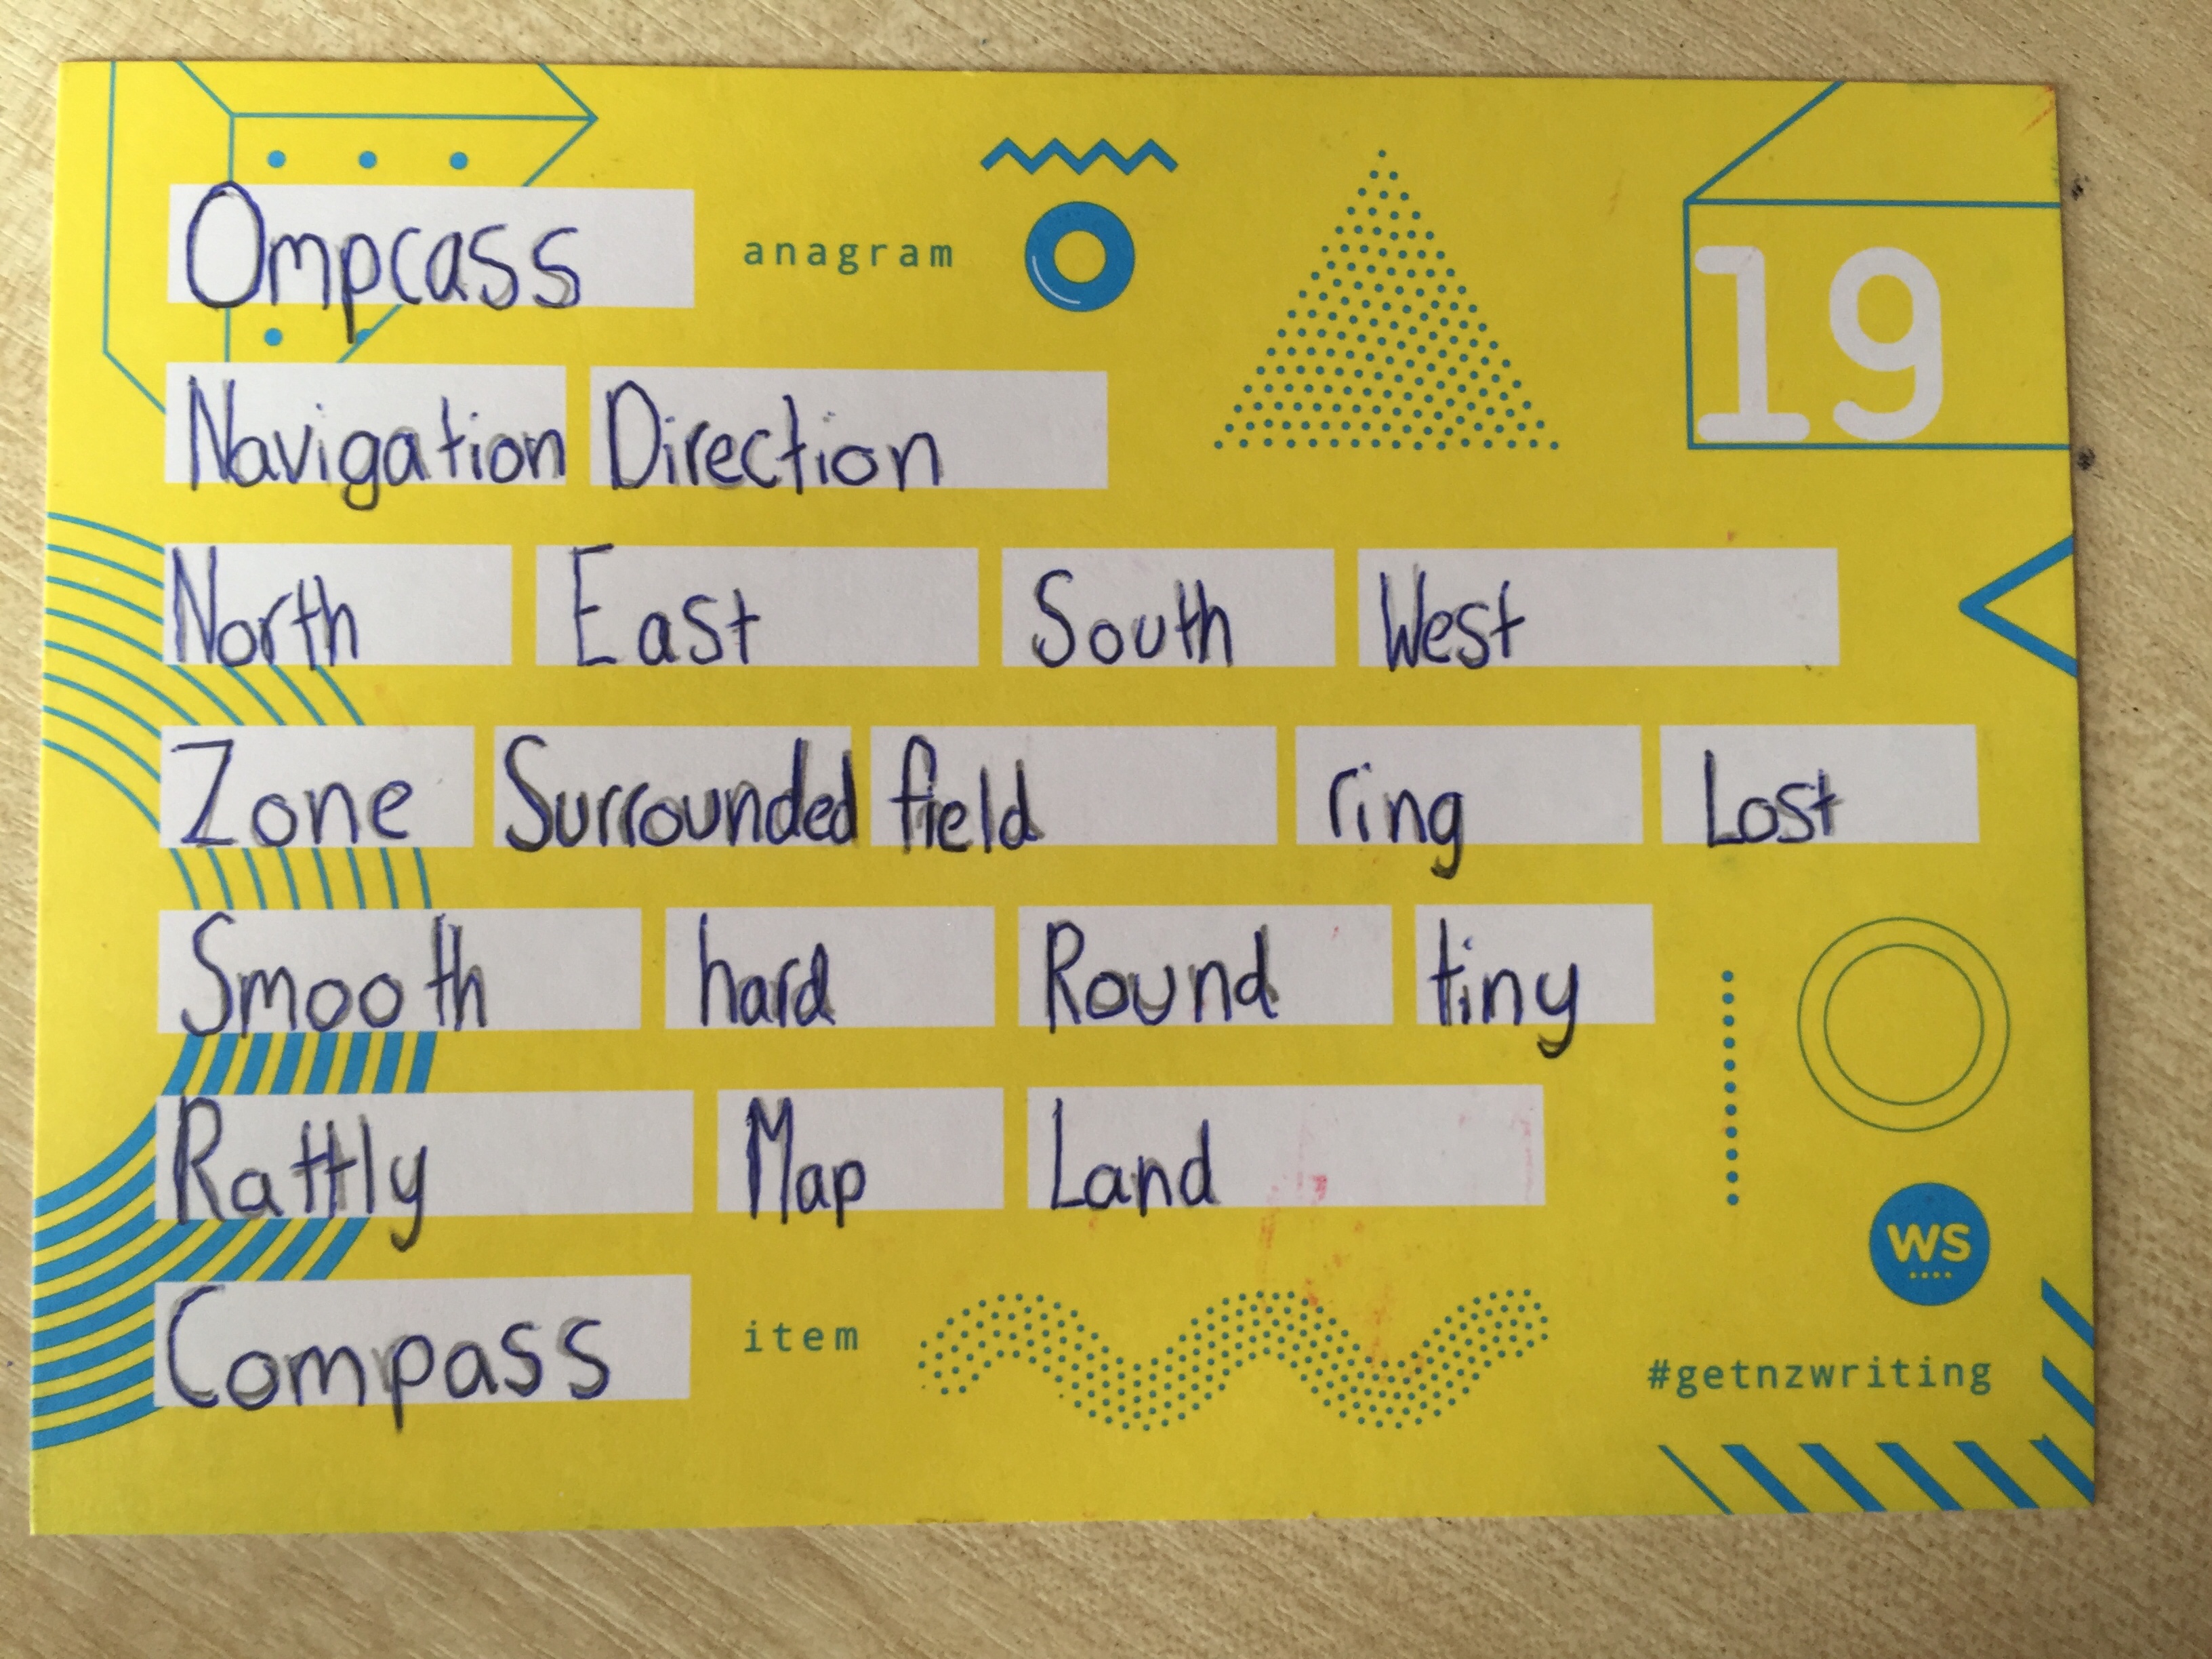 Ompcass anagram 19
Navigation Direction
North East South West
Zone Surrounded field ring Lost
Smooth hard Round tiny
Rattly Map Land
WS
Compass item
#getnzwriting